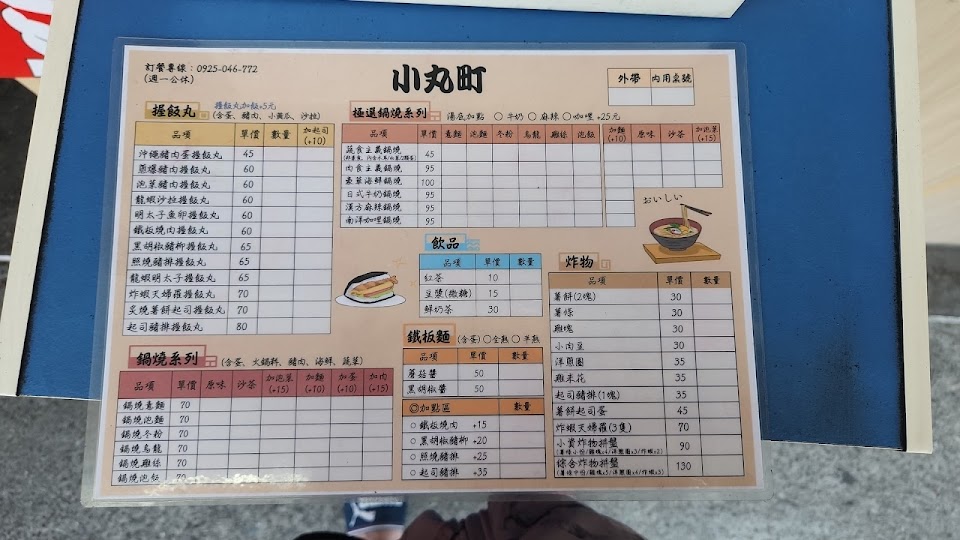 訂餐專線：0925-046-772
(週一公休)
小丸町
外帶 內用桌號
握飯丸 握飯丸加飯+5元
(含蛋、豬肉、小黃瓜、沙拉)
品項 單價 數量 加起司(+10)
沖繩豬肉蛋握飯丸 45
蔥爆豬肉握飯丸 60
泡菜豬肉握飯丸 60
龍蝦沙拉握飯丸 60
明太子魚卵握飯丸 60
鐵板燒肉握飯丸 60
黑胡椒豬柳握飯丸 65
照燒豬排握飯丸 65
龍蝦明太子握飯丸 65
炸蝦天婦羅握飯丸 70
炙燒薯餅起司握飯丸 70
起司豬排握飯丸 80
鍋燒系列 (含蛋、火鍋料、豬肉、海鮮、蔬菜)
品項 單價 原味 沙茶 加泡菜(+15) 加麵(+10) 加蛋(+10) 加肉(+15)
鍋燒意麵 70
鍋燒泡麵 70
鍋燒冬粉 70
鍋燒烏龍 70
鍋燒雞絲 70
鍋燒泡飯 70
極選鍋燒系列 湯底加點 ○牛奶 ○麻辣 ○咖哩 +25元
品項 單價 意麵 泡麵 冬粉 烏龍 雞絲 泡飯 加麵(+10) 原味 沙茶 加泡菜(+15)
蔬食主義鍋燒 45
肉食主義鍋燒 95
豪華海鮮鍋燒 100
日式牛奶鍋燒 95
漢方麻辣鍋燒 95
南洋咖哩鍋燒 95
おいしい
飲品
品項 單價 數量
紅茶 10
豆漿(微糖) 15
鮮奶茶 30
鐵板麵 (含蛋) ○全熟 ○半熟
品項 單價 數量
蘑菇醬 50
黑胡椒醬 50
◎加點區 數量
○鐵板燒肉 +15
○黑胡椒豬柳 +20
○照燒豬排 +25
○起司豬排 +35
炸物
品項 單價 數量
薯餅(2塊) 30
薯條 30
雞塊 30
小肉豆 30
洋蔥圈 35
雞米花 35
起司豬排(1塊) 35
薯餅起司蛋 45
炸蝦天婦羅(3隻) 70
小資炸物拼盤 90
綜合炸物拼盤 130